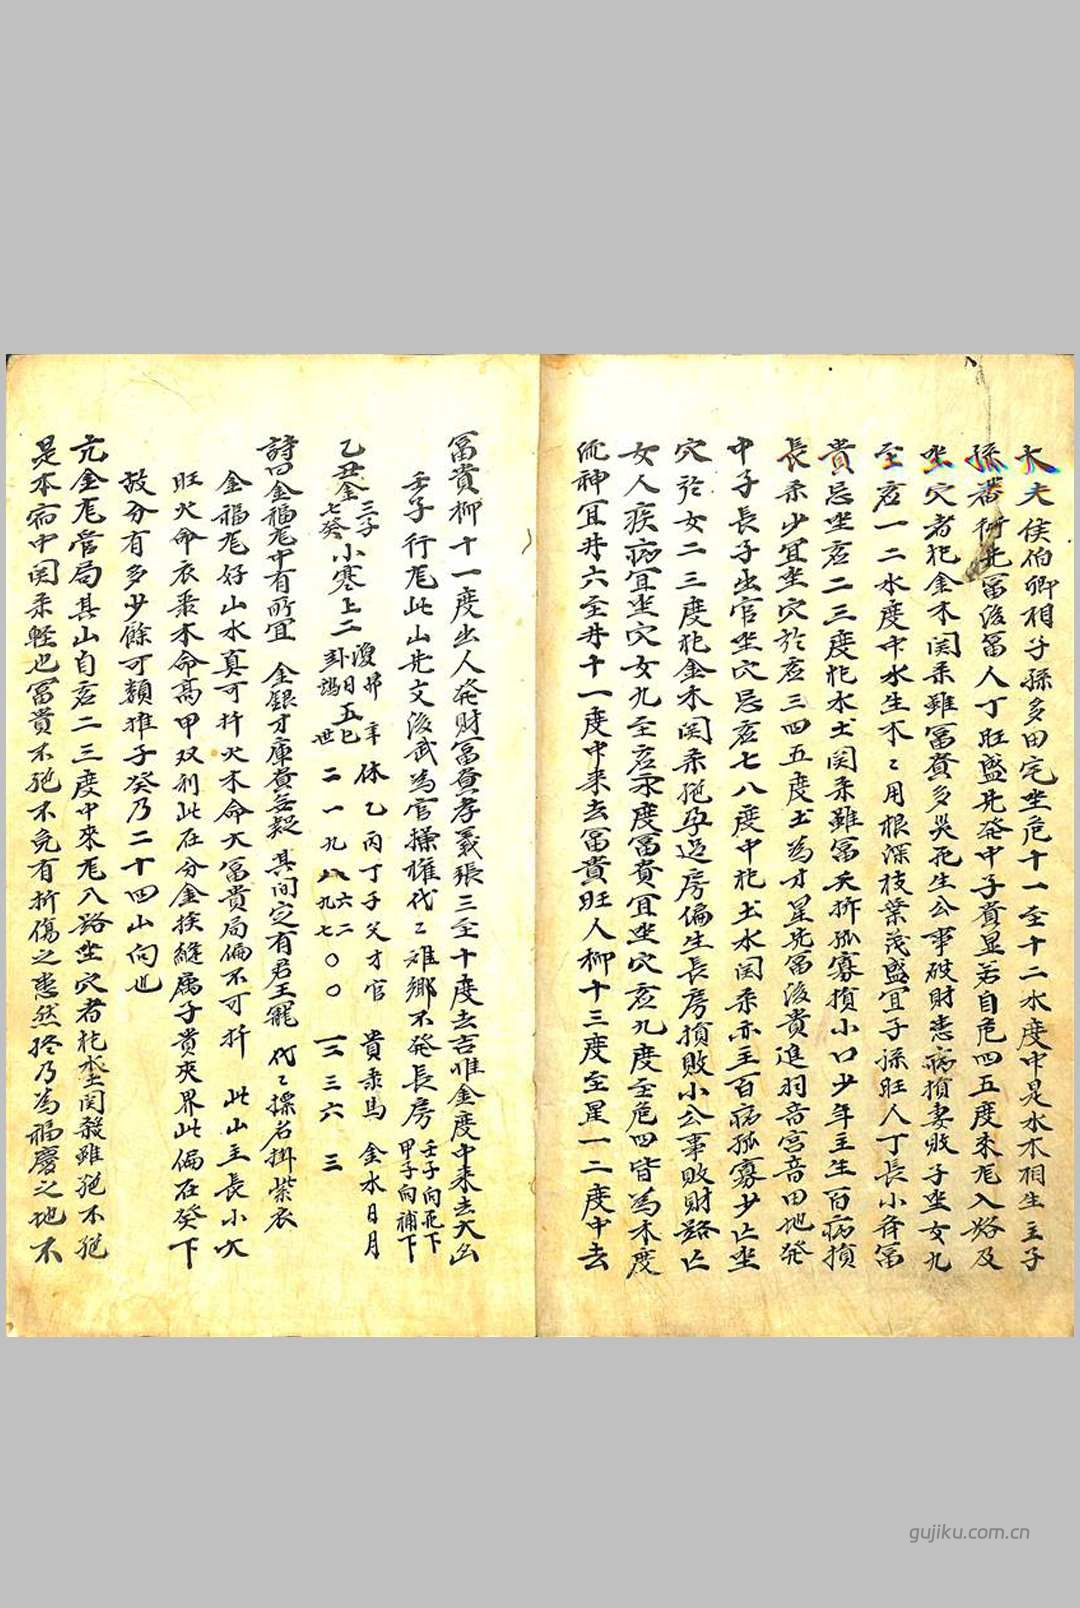 大夫侯伯卿相子孫多田宅坐危十一至十二水度中是水木相生主子
孫蕃衍先冨後冨人丁旺盛先発中子貴显若自危四五度來尨入路及
坐穴者犯金木関柔雖冨貴多災死生公事破財患病損妻敗子坐女九
至虗一二水度中水生木〻用根深枝葉茂盛宜子孫旺人丁長小房冨
貴忌坐虗二三度犯水土関柔雖冨夭折孤寡損小口少年主生百病損
長柔少宜坐穴於虗三四五度土為才星先冨後貴進羽音宮音田地発
中子長子出官坐穴忌虗七八度中犯土水関柔亦主百病孤寡少亡坐
穴於女二三度犯金木関柔絶孕过房偏生長房損敗小公事敗財路亡
女人疾病宜坐穴女九至虗度冨貴宜坐穴虗九度至危四皆為木度
流神宜井六至井十一度中来去冨貴旺人柳十三度至星一二度中去
冨貴柳十一度出人発財冨貴孝義張三至十度去吉惟金度中来去大凶
壬子行尨此山先文後武為官操權代〻难鄉不発長房 壬子向兀下 甲子向補下
乙丑金 三子 七癸 小寒上二 卦 五 世 二一九八 六二 九七 〇〇 一三三六 三
休乙丙丁子父才官 貴柔馬 金水日月
詩曰金福尨中有所宜 金銀才庫黃 其间定有君王寵 代〻標名掛紫衣
金福尨好山水真可扦火木命大冨貴局偏不可扦 此山主長小大
旺火命衣柔木命高甲双利此在分金挨縫属子貴夾界此偏在癸下
故分有多少餘可類推子癸乃二十四山向也
亢金尨當局其山自虗二三度中來尨八路坐穴者犯関殺雖絶不絶
是本宿中関柔輕也冨貴不絶不免有折傷之患然終乃為福慶之地不
gujiku.com.cn